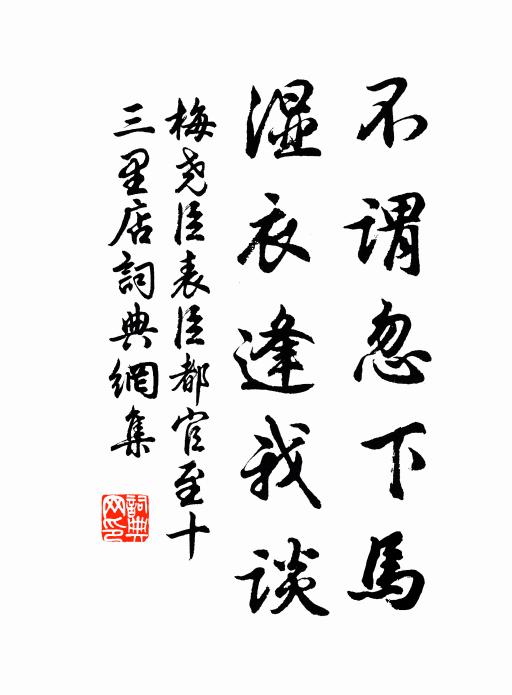 不谓忽下馬
湿衣逢我谈
梅尧臣表臣都官至十
三里店詞典網集
詞典
网印